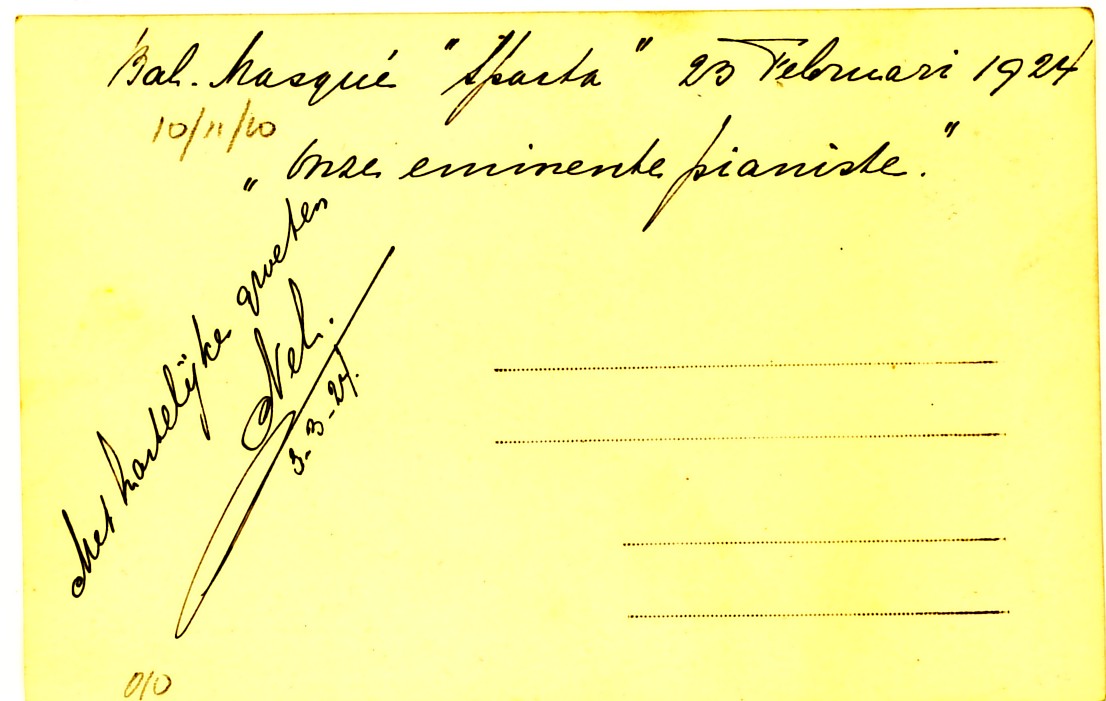 Bal. Masqué "Sparta" 23 Februari 1924
10/11/10
"Onze eminente pianiste."
Met hartelijke groeten
Nel.
3-3-24.
0/0